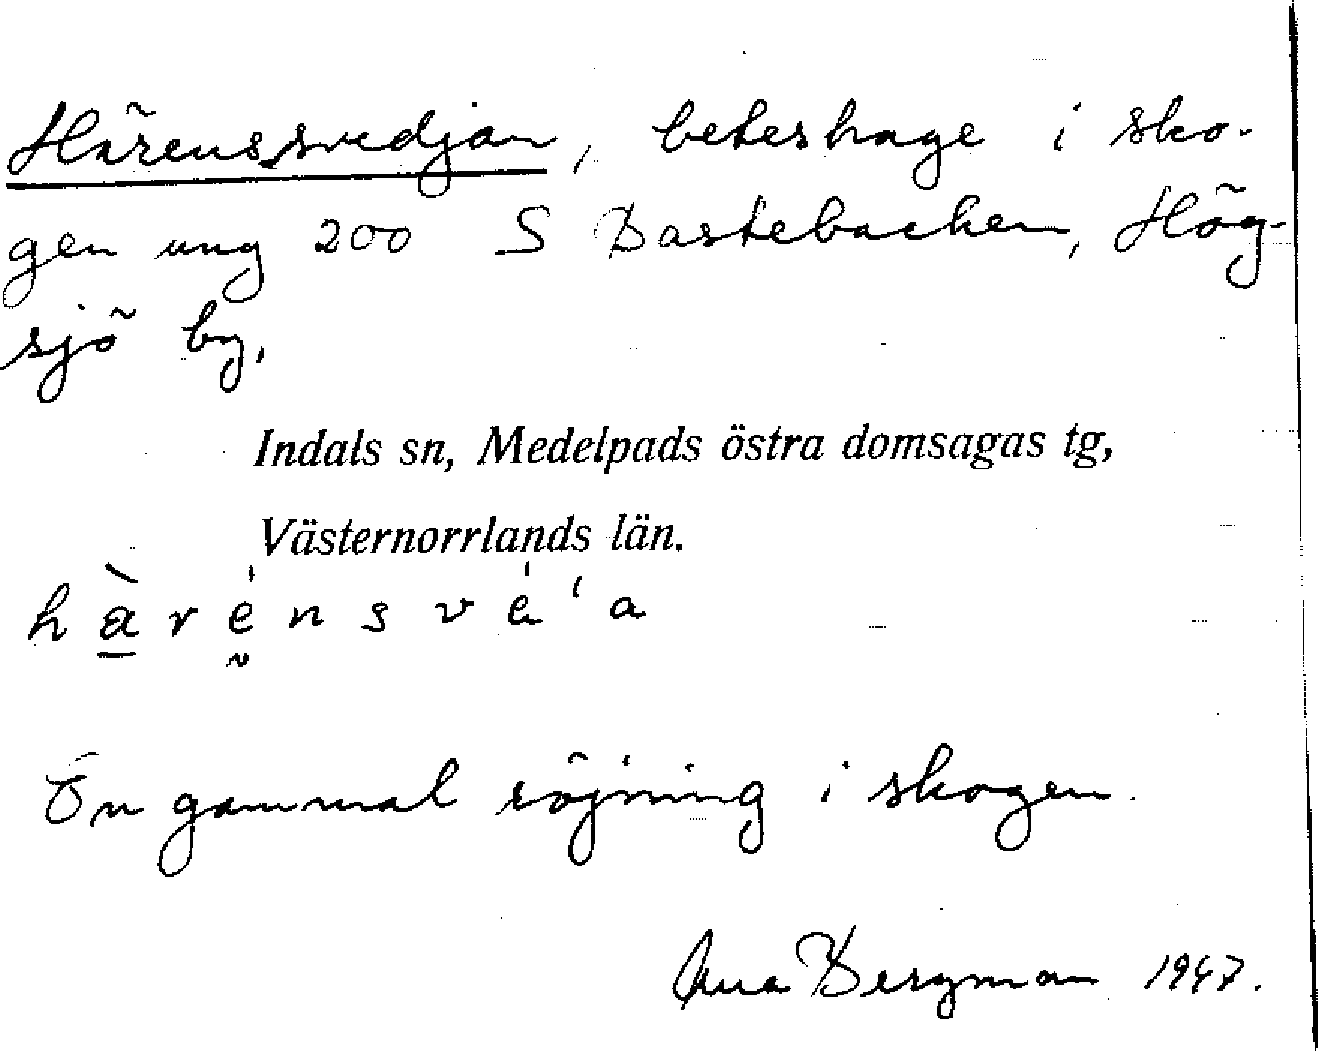 Härenssvedjan, beteshage i sko-
gen ung 200 S Bastebacken, Hög-
sjö by,
Indals sn, Medelpads östra domsagas tg,
Västernorrlands län.
h à r e n s v e ' a
En gammal röjning i skogen.
Ana Bergman 1947.